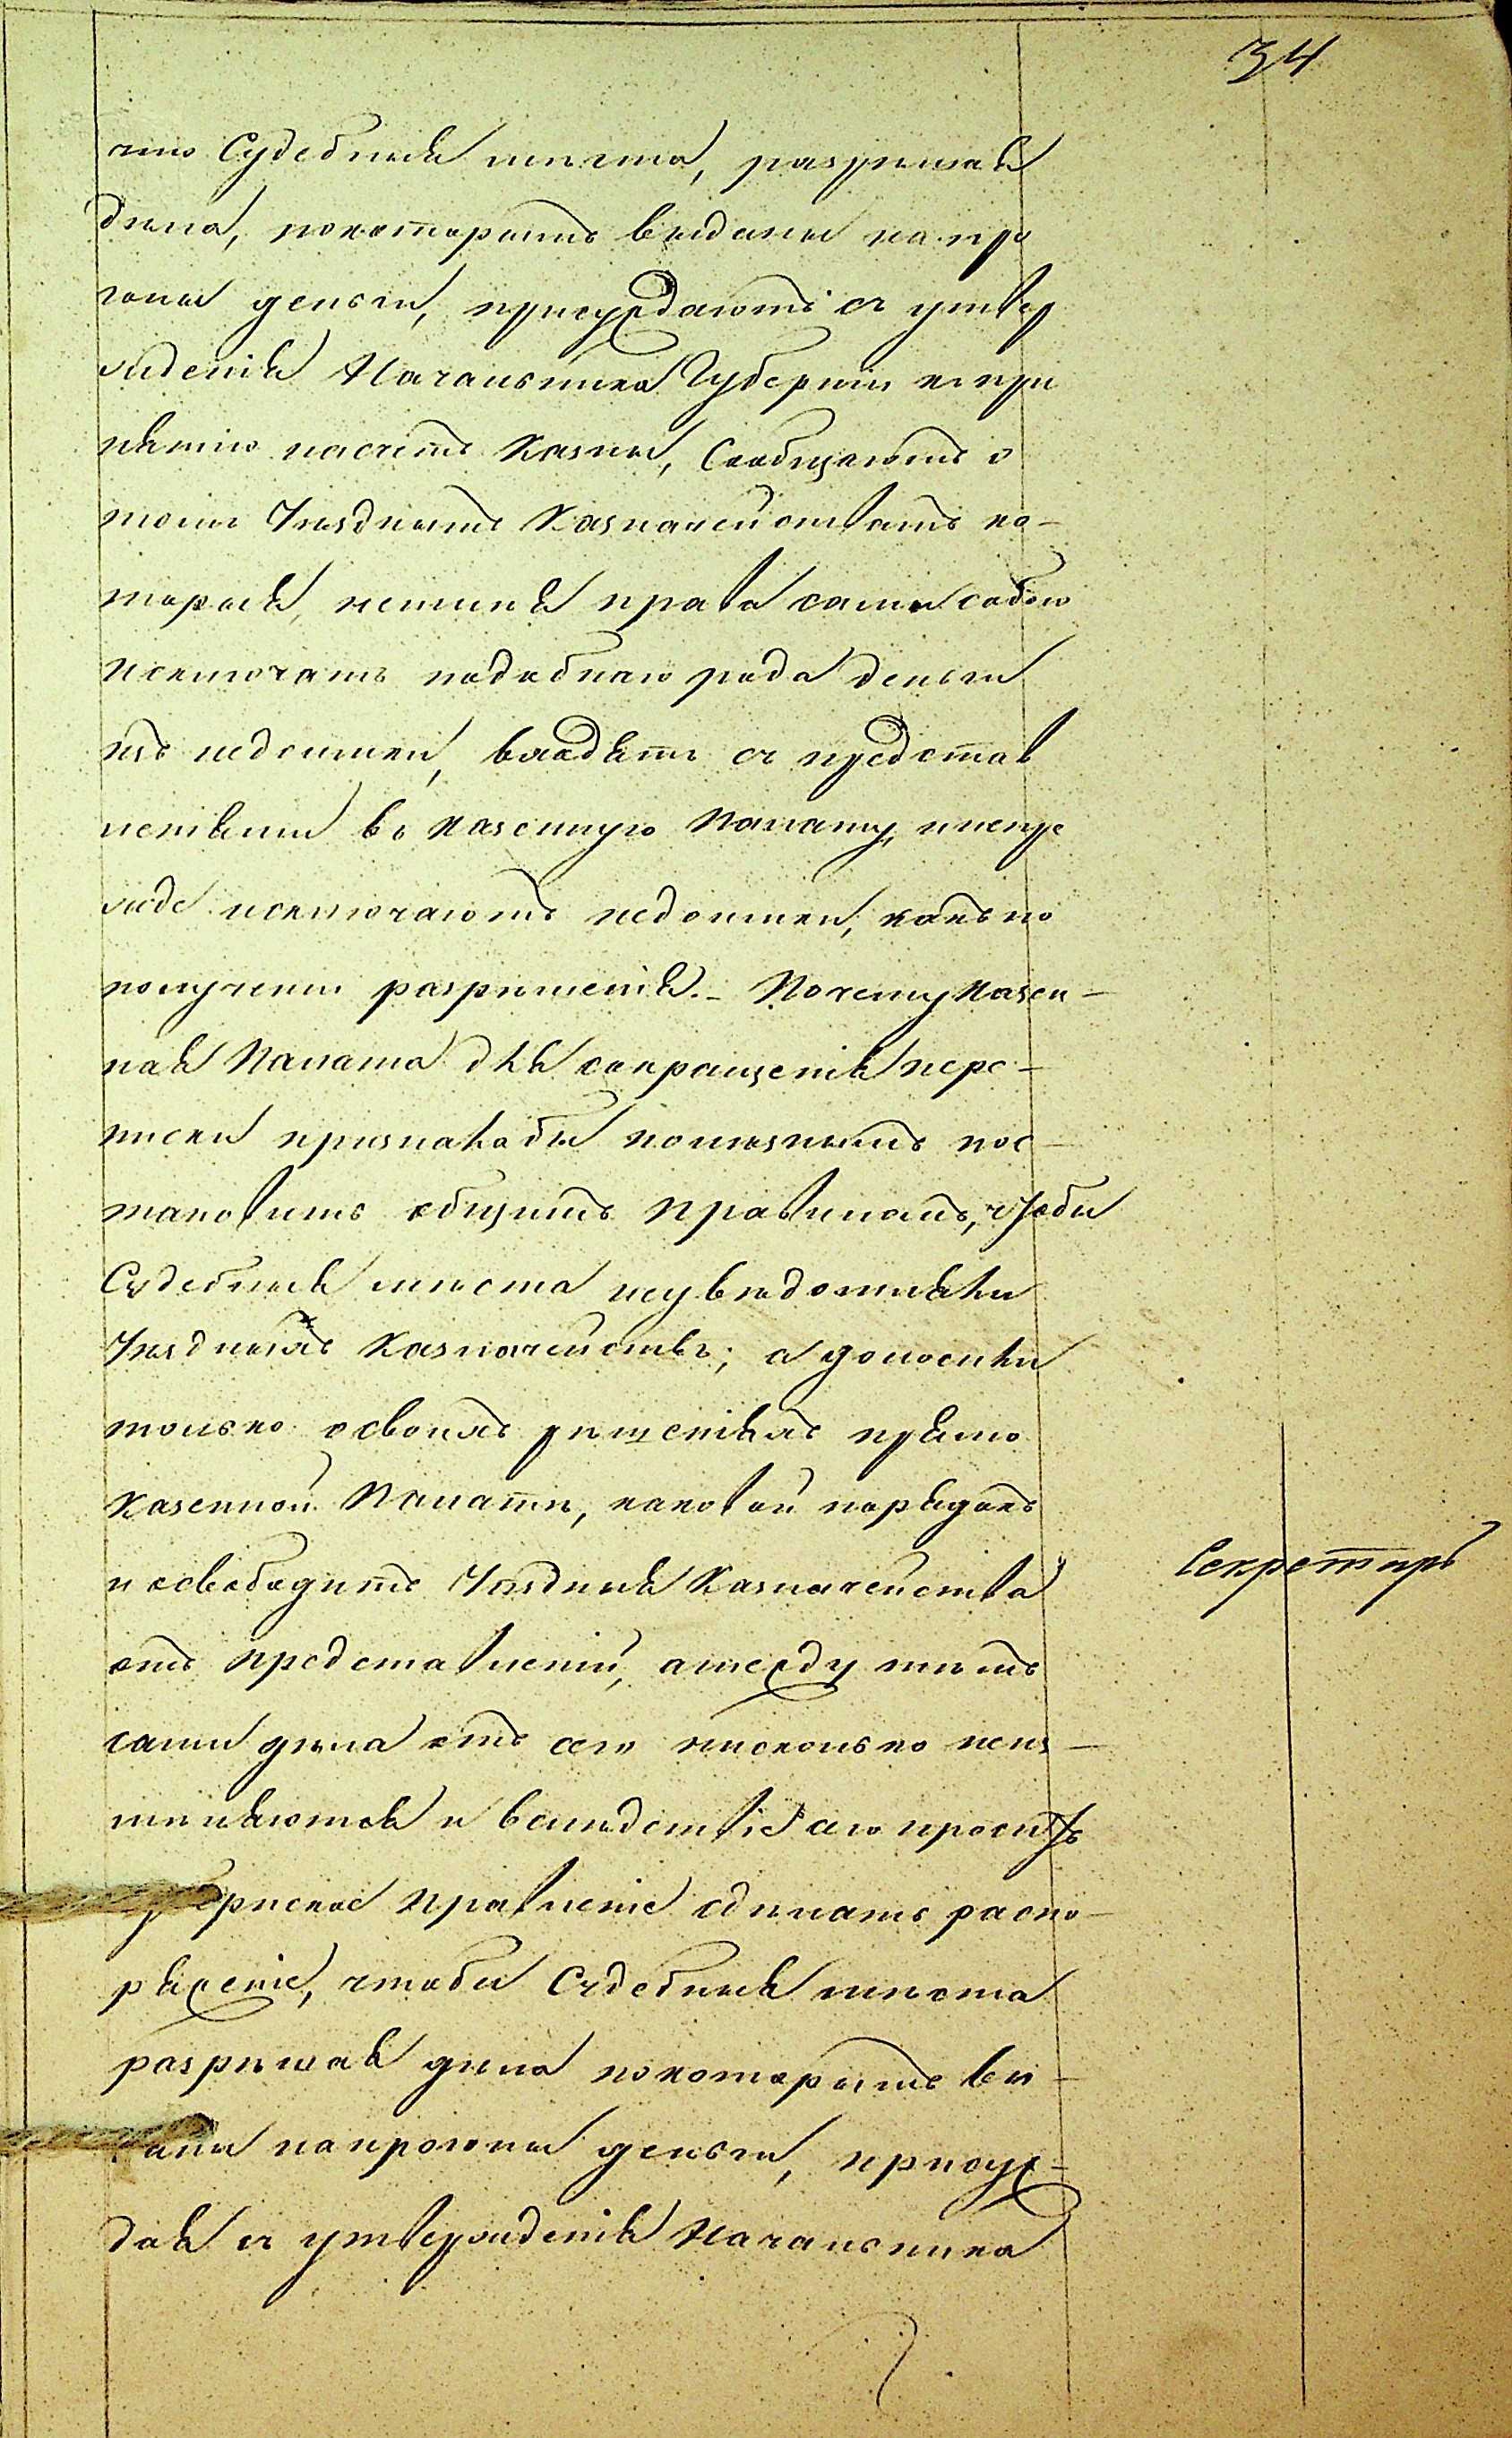 34
что Судебныя мѣста, разрѣшая
дѣла, покоторымъ выданы на про
гоны деньги, присуждаютъ съ утвер
жденія Начальника Губерніи къ при
нятію насчетъ казны, Сообщаютъ о
томъ Уѣзднымъ Казначействамъ ко-
торыя, неимѣя права сами собою
исключать подобнаго рода деньги
изъ недоимки, входятъ съ представ
леніями въ Казенную Палату, инепре
жде исключаютъ недоимки, какъ по
полученіи разрѣшенія. – Почему Казен-
ная Палата для сокращенія пере-
писки признала бы полезнымъ пос-
тановить общимъ правиломъ, чтобы
Судебныя мѣста неувѣдомляли
Уѣздныхъ Казначействъ; а доносили
только освоихъ рѣшеніяхъ прямо
Казенной Палатѣ, каковой порядокъ
и освободитъ Уѣздныя Казначейства
отъ представленій, амежду тѣмъ
сами дѣла отъ сего нисколько неиз-
мѣняются и вслѣдствіе сего проситъ
Губернское Правленіе сдѣлать распо-
ряженіе, чтобы Судебныя мѣста
разрѣшая дѣла покоторымъ вы-
даны напрогоны деньги, присуж-
дая съ утвержденія Начальника
Секретарь